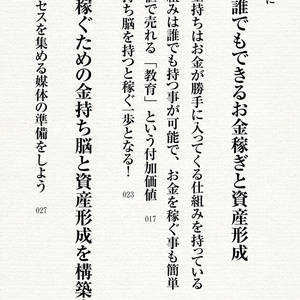 に
誰でもできるお金稼ぎと資産形成
金持ちはお金が勝手に入ってくる仕組みを持っている
組みは誰でも持つ事が可能で、お金を稼ぐ事も簡単
値で売れる「教育」という付加価値 017
持ち脳を持つと稼ぐ一歩となる! 023
稼ぐための金持ち脳と資産形成を構築
セスを集める媒体の準備をしよう 027